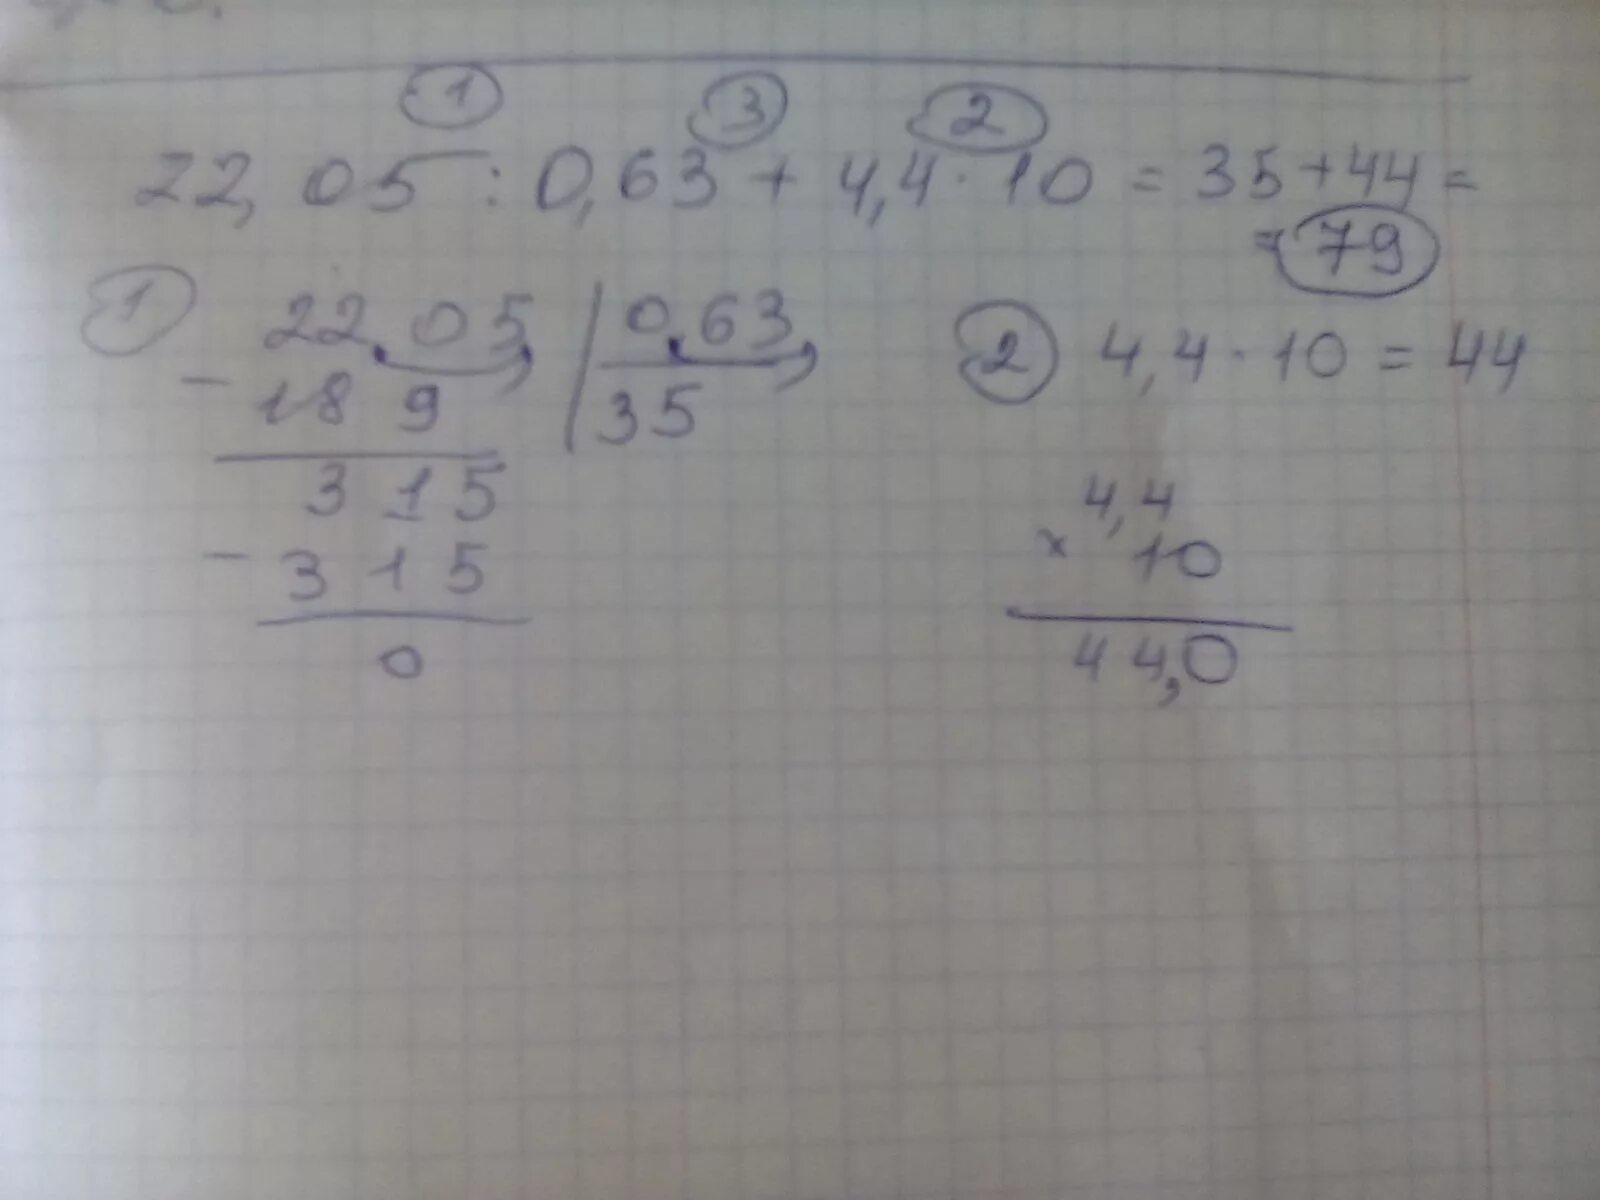 1 3 2
22,05 : 0,63 + 4,4 · 10 = 35 + 44 =
= 79
1 22,05 | 0,63
- 189 | 35
315
- 315
0
2 4,4 · 10 = 44
4,4
× 10
44,0